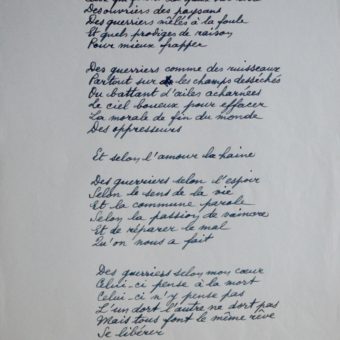 Des ouvriers des paysans
Des guerriers mêlés à la foule
Et quels prodiges de raison
Pour mieux frapper
Des guerriers comme des ruisseaux
Partout sur les champs desséchés
Ou battant d'ailes acharnées
Le ciel boueux pour effacer
La morale de fin du monde
Des oppresseurs
Et selon l'amour la haine
Des guerriers selon l'espoir
Selon le sens de la vie
Et la commune parole
Selon la passion de vaincre
Et de réparer le mal
Qu'on nous a fait
Des guerriers selon mon cœur
Celui-ci pense à la mort
Celui-ci n'y pense pas
L'un dort l'autre ne dort pas
Mais tous font le même rêve
Se libérer